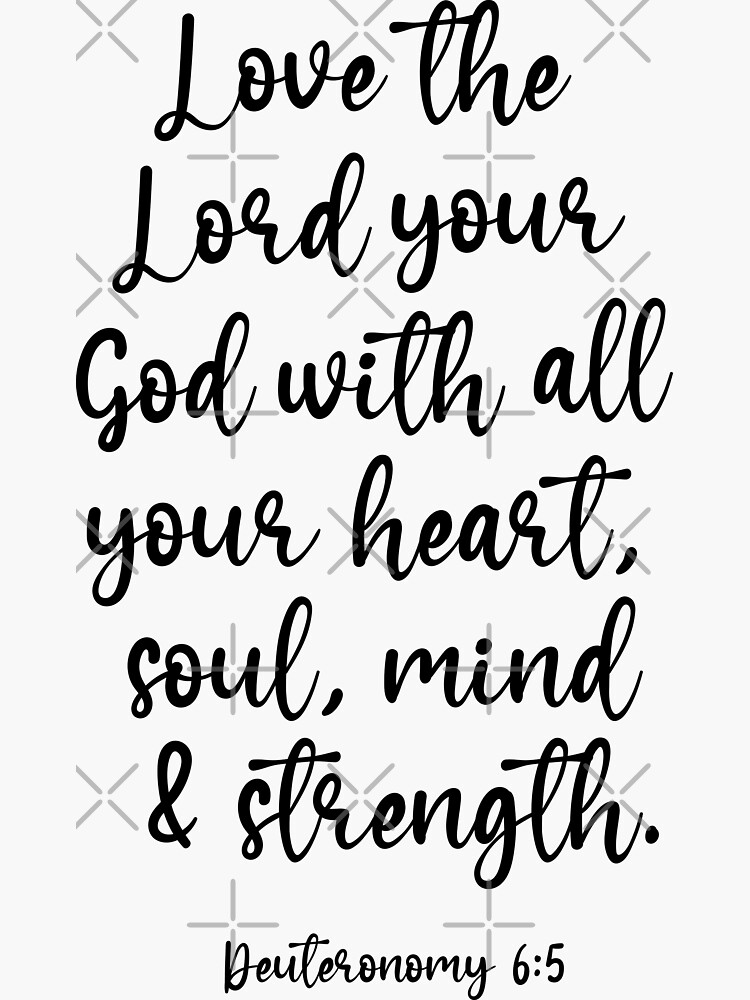 Love the
Lord your
God with all
your heart,
soul, mind
& strength.
Deuteronomy 6:5